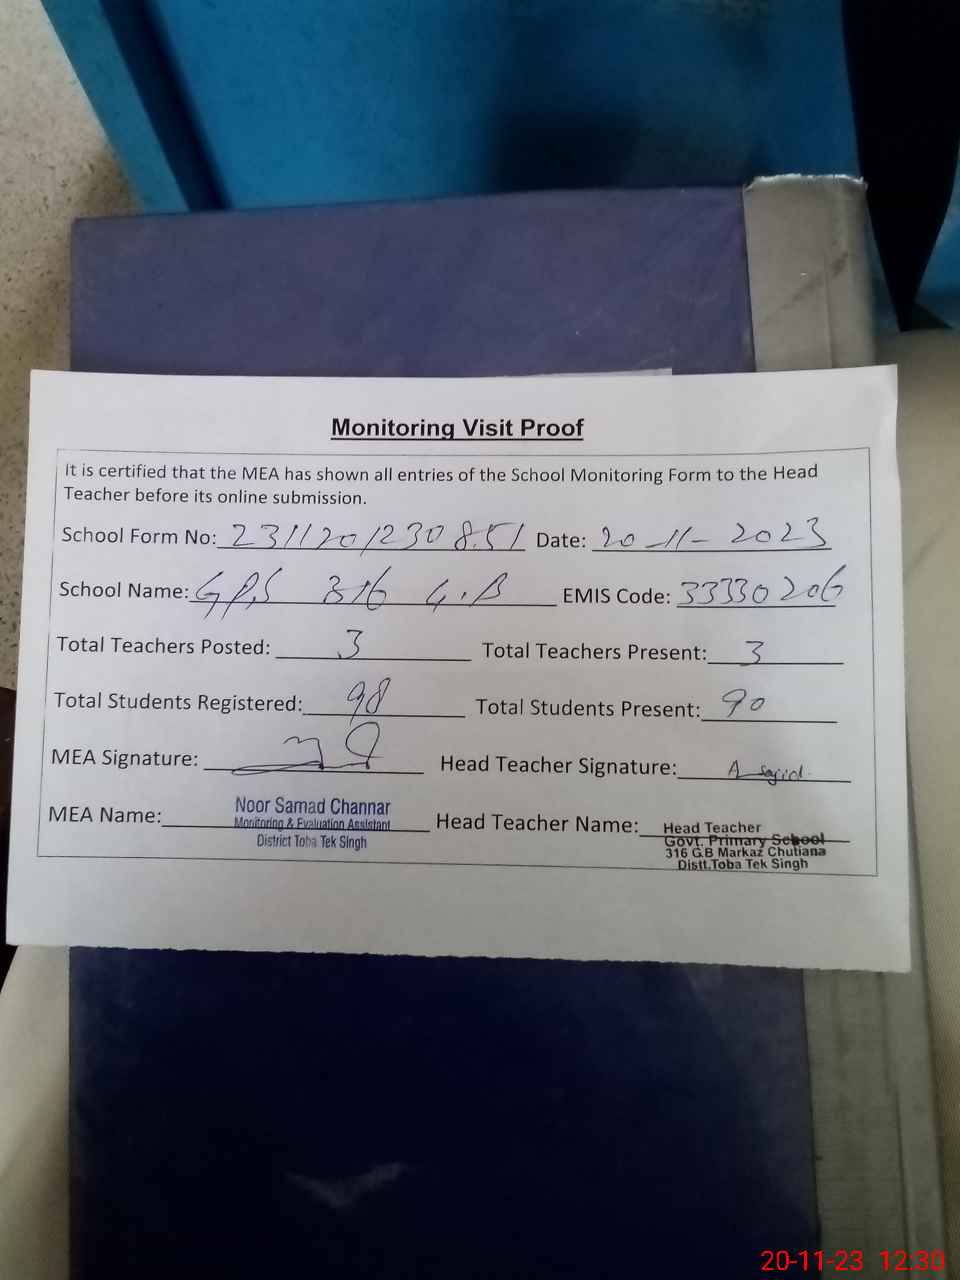 Monitoring Visit Proof
It is certified that the MEA has shown all entries of the School Monitoring Form to the Head
Teacher before its online submission.
School Form No: 23112012308.51 Date: 20-11-2023
School Name: GPS 316 G.B EMIS Code: 33330206
Total Teachers Posted: 3 Total Teachers Present: 3
Total Students Registered: 98 Total Students Present: 90
MEA Signature: Head Teacher Signature: A sajid.
MEA Name: Noor Samad Channar
Monitoring & Evaluation Assistant
District Toba Tek Singh
Head Teacher Name: Head Teacher
Govt. Primary School
316 G.B Markaz Chutiana
Distt.Toba Tek Singh
20-11-23 12:30